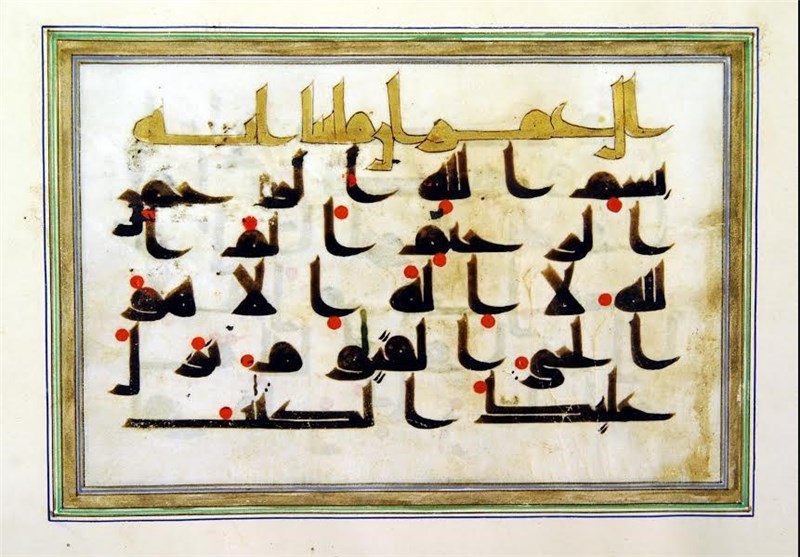 ال عمران مائتا ايه
بسم الله الرحمن
الرحيم الم ا
لله لا اله الا هو
الحي القيوم نزل
عليك الكتب